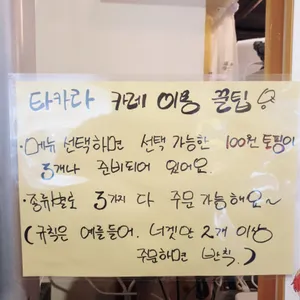 타카라 카레 이용 꿀팁
·메뉴 선택하면 선택 가능한 100원 토핑이
3개나 준비되어 있어요.
·종류별로 3가지 다 주문 가능해요~
(규칙은 예를들어. 너겟만 2개 이상
주문하면 반칙.)